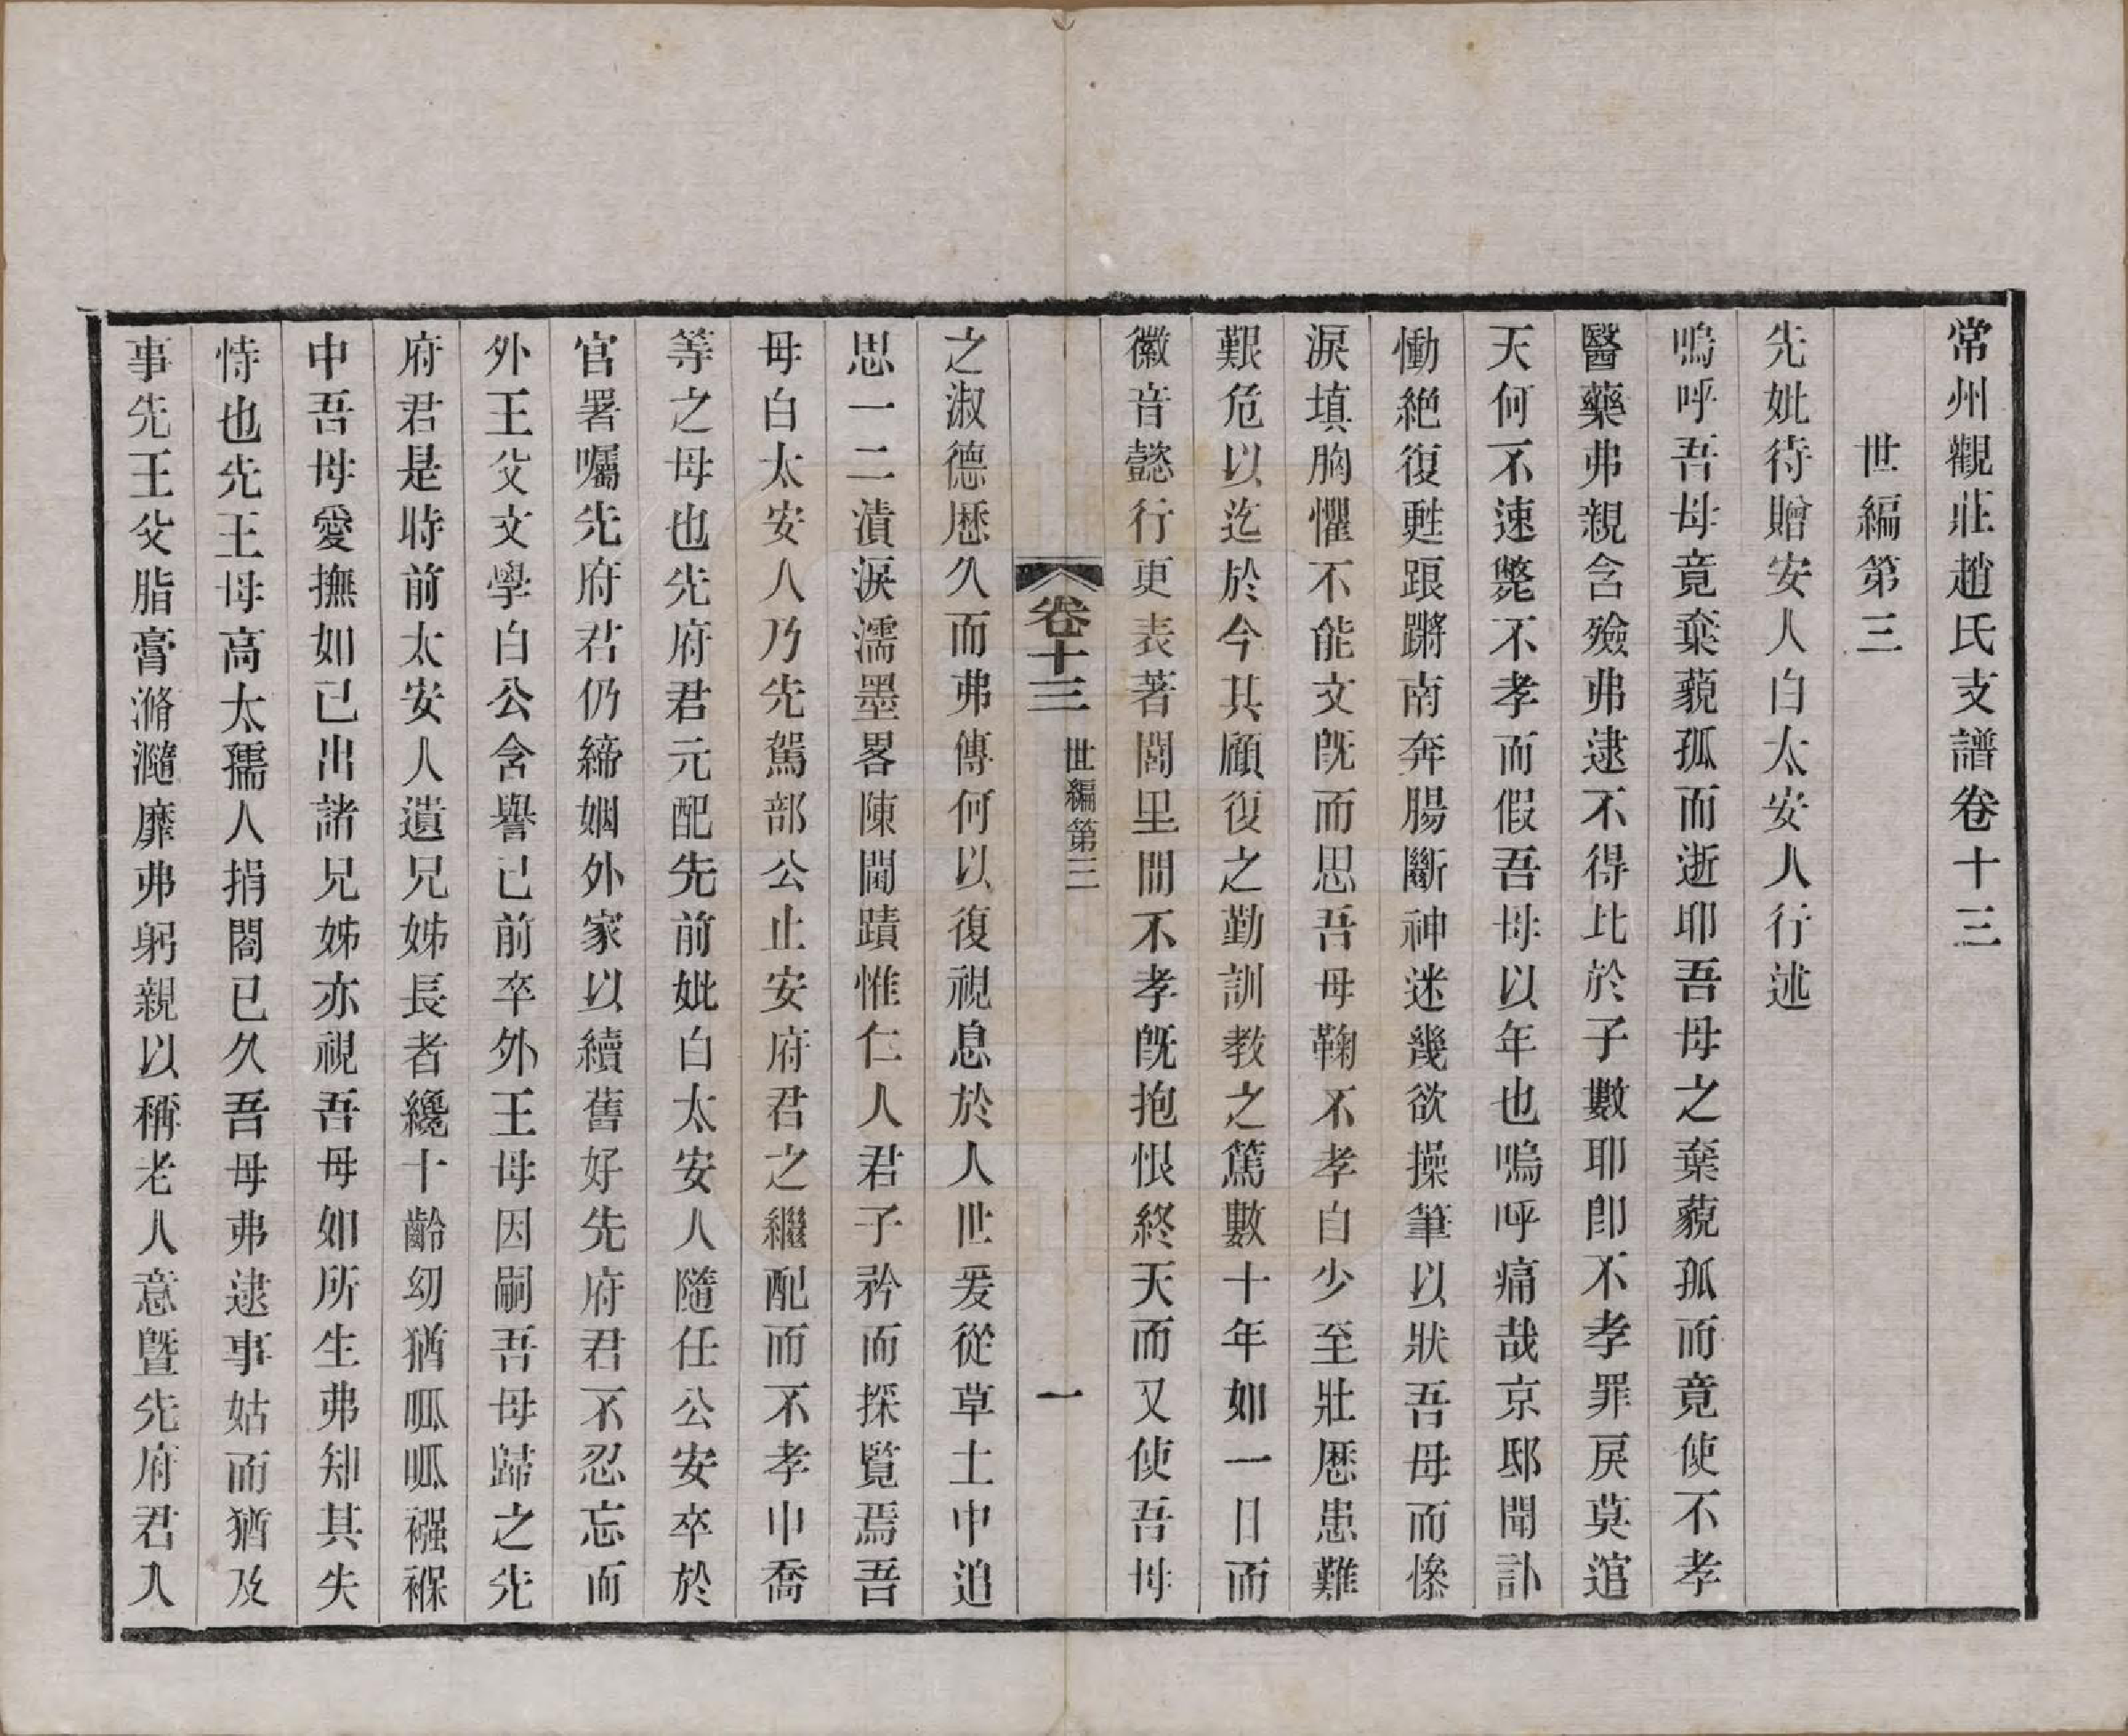 常州觀莊趙氏支譜卷十三
世編第三
先妣待贈安人白太安人行述
嗚呼吾母竟棄藐孤而逝耶吾母之棄藐孤而竟使不孝
醫藥弗親含殮弗逮不得比於子數耶卽不孝罪戾莫逭
天何不速斃不孝而假吾母以年也嗚呼痛哉京邸聞訃
慟絕復甦踉蹡南奔腸斷神迷幾欲操筆以狀吾母而慘
淚填胸懼不能文旣而思吾母鞠不孝自少至壯歷患難
艱危以迄於今其顧復之勤訓教之篤數十年如一日而
徽音懿行更表著閭里間不孝旣抱恨終天而又使吾母
卷十三 世編第三 一
之淑德歷久而弗傳何以復視息於人世爰從草土中追
思一二漬淚濡墨畧陳閫蹟惟仁人君子矜而採覽焉吾
母白太安人乃先駕部公止安府君之繼配而不孝申喬
等之母也先府君元配先前妣白太安人隨任公安卒於
官署囑先府君仍締姻外家以續舊好先府君不忍忘而
外王父文學白公含譽已前卒外王母因嗣吾母歸之先
府君是時前太安人遺兄姊長者纔十齡幼猶呱呱襁褓
中吾母愛撫如已出諸兄姊亦視吾母如所生弗知其失
恃也先王母高太孺人捐閤已久吾母弗逮事姑而猶及
事先王父脂膏滫瀡靡弗躬親以稱老人意曁先府君入